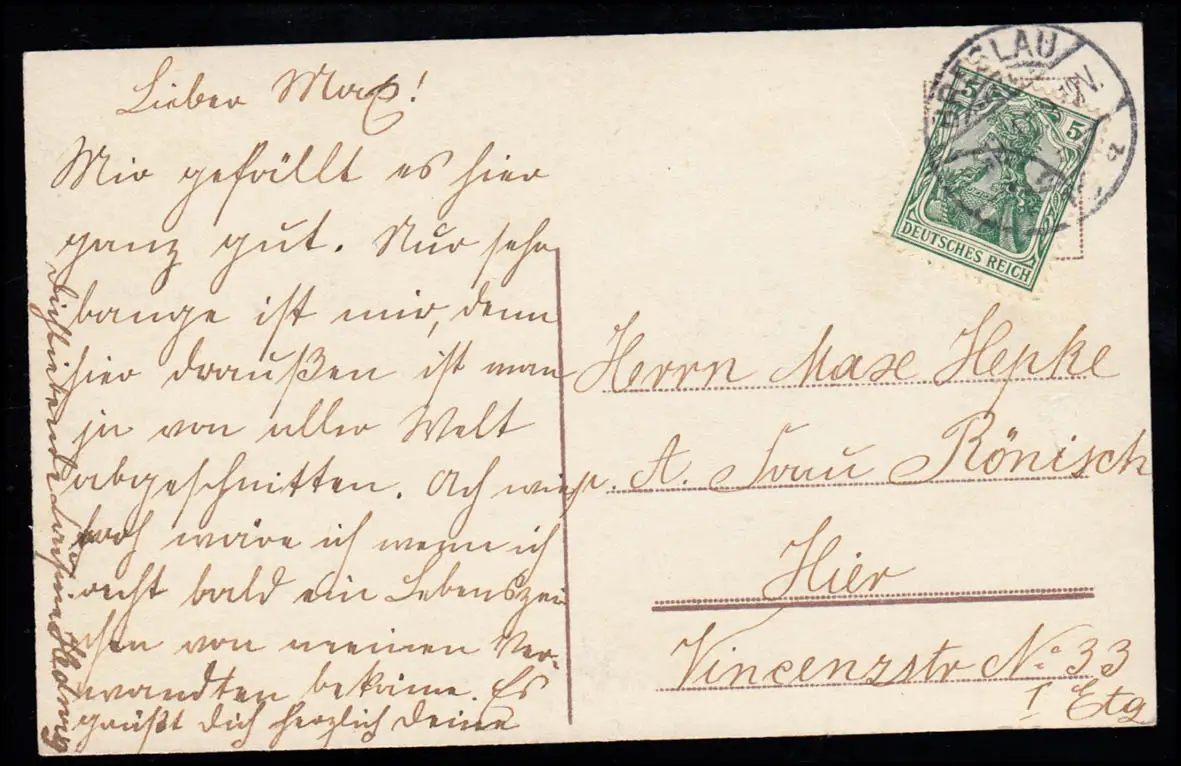 Lieber Max!
Mir gefällt es hier
ganz gut. Nur sehr
bange ist mir, denn
hier draußen ist man
ja von aller Welt
abgeschnitten. Ach wie
froh wäre ich wenn ich
recht bald ein Lebenszei
chen von meinen Ver-
wandten bekäme. Es
grüßt Dich herzlich Deine
Dich liebende Hedwig
BRESLAU
5 5
DEUTSCHES REICH
Herrn Max Hepke
p. A. Frau Rönisch
Hier
Vincenzstr No 33
I Etg